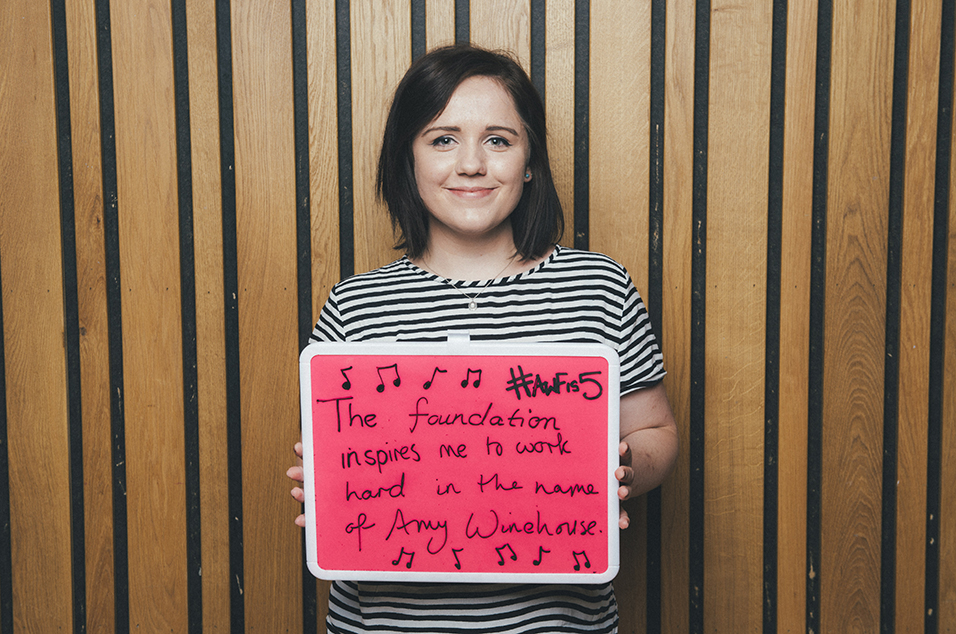 #AWFis5
The foundation
inspires me to work
hard in the name
of Amy Winehouse.